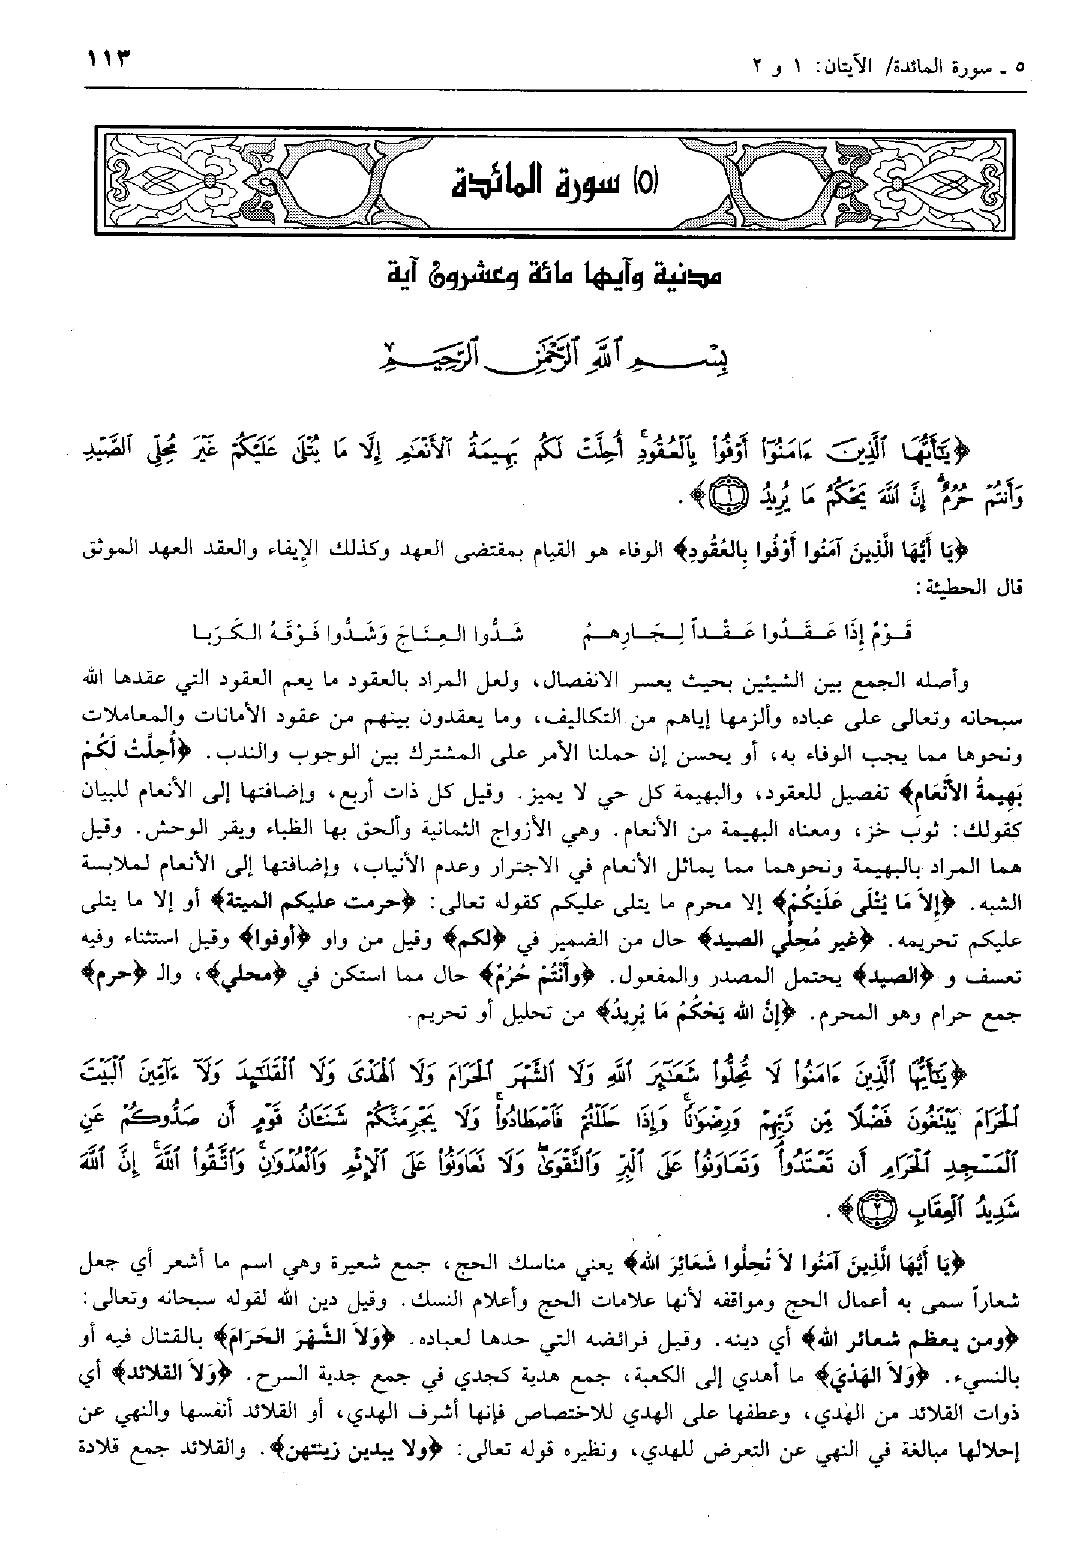 ٥ ـ سورة المائدة/ الآيتان: ١ و ٢
١١٣
(٥) سورة المائدة
مدنية وآيها مائة وعشرون آية
بِسْمِ ٱللَّهِ ٱلرَّحْمَٰنِ ٱلرَّحِيمِ
﴿يَٰٓأَيُّهَا ٱلَّذِينَ ءَامَنُوٓا۟ أَوْفُوا۟ بِٱلْعُقُودِ ۚ أُحِلَّتْ لَكُم بَهِيمَةُ ٱلْأَنْعَٰمِ إِلَّا مَا يُتْلَىٰ عَلَيْكُمْ غَيْرَ مُحِلِّى ٱلصَّيْدِ
وَأَنتُمْ حُرُمٌ ۗ إِنَّ ٱللَّهَ يَحْكُمُ مَا يُرِيدُ ١﴾.
﴿يَا أَيُّهَا الَّذِينَ آمَنُوا أَوْفُوا بِالعُقُودِ﴾ الوفاء هو القيام بمقتضى العهد وكذلك الإيفاء والعقد العهد الموثق
قال الحطيئة:
قَوْمٌ إِذَا عَقَدُوا عَقْداً لِجَارِهِمُ شَدُّوا العِنَاجَ وَشَدُّوا فَوْقَهُ الكَرَبا
وأصله الجمع بين الشيئين بحيث يعسر الانفصال، ولعل المراد بالعقود ما يعم العقود التي عقدها الله
سبحانه وتعالى على عباده وألزمها إياهم من التكاليف، وما يعقدون بينهم من عقود الأمانات والمعاملات
ونحوها مما يجب الوفاء به، أو يحسن إن حملنا الأمر على المشترك بين الوجوب والندب. ﴿أُحِلَّتْ لَكُمْ
بَهِيمةُ الأَنْعَامِ﴾ تفصيل للعقود، والبهيمة كل حي لا يميز. وقيل كل ذات أربع، وإضافتها إلى الأنعام للبيان
كقولك: ثوب خز، ومعناه البهيمة من الأنعام. وهي الأزواج الثمانية وألحق بها الظباء وبقر الوحش. وقيل
هما المراد بالبهيمة ونحوهما مما يماثل الأنعام في الاجترار وعدم الأنياب، وإضافتها إلى الأنعام لملابسة
الشبه. ﴿إِلاَ مَا يُتْلَى عَلَيْكُمْ﴾ إلا محرم ما يتلى عليكم كقوله تعالى: ﴿حرمت عليكم الميتة﴾ أو إلا ما يتلى
عليكم تحريمه. ﴿غير مُحِلِّي الصيد﴾ حال من الضمير في ﴿لكم﴾ وقيل من واو ﴿أوفوا﴾ وقيل استثناء وفيه
تعسف و ﴿الصيد﴾ يحتمل المصدر والمفعول. ﴿وأَنْتُمْ حُرُمٌ﴾ حال مما استكن في ﴿محلي﴾، والـ ﴿حرم﴾
جمع حرام وهو المحرم. ﴿إِنَّ الله يَحْكُمُ مَا يُرِيدُ﴾ من تحليل أو تحريم.
﴿يَٰٓأَيُّهَا ٱلَّذِينَ ءَامَنُوا۟ لَا تُحِلُّوا۟ شَعَٰٓئِرَ ٱللَّهِ وَلَا ٱلشَّهْرَ ٱلْحَرَامَ وَلَا ٱلْهَدْىَ وَلَا ٱلْقَلَٰٓئِدَ وَلَآ ءَآمِّينَ ٱلْبَيْتَ
ٱلْحَرَامَ يَبْتَغُونَ فَضْلًا مِّن رَّبِّهِمْ وَرِضْوَٰنًا ۚ وَإِذَا حَلَلْتُمْ فَٱصْطَادُوا۟ ۚ وَلَا يَجْرِمَنَّكُمْ شَنَـَٔانُ قَوْمٍ أَن صَدُّوكُمْ عَنِ
ٱلْمَسْجِدِ ٱلْحَرَامِ أَن تَعْتَدُوا۟ ۘ وَتَعَاوَنُوا۟ عَلَى ٱلْبِرِّ وَٱلتَّقْوَىٰ ۖ وَلَا تَعَاوَنُوا۟ عَلَى ٱلْإِثْمِ وَٱلْعُدْوَٰنِ ۚ وَٱتَّقُوا۟ ٱللَّهَ ۖ إِنَّ ٱللَّهَ
شَدِيدُ ٱلْعِقَابِ ٢﴾.
﴿يَا أَيُّهَا الَّذِينَ آمَنُوا لاَ تُحِلُّوا شَعَائِرَ الله﴾ يعني مناسك الحج، جمع شعيرة وهي اسم ما أشعر أي جعل
شعاراً سمى به أعمال الحج ومواقفه لأنها علامات الحج وأعلام النسك. وقيل دين الله لقوله سبحانه وتعالى:
﴿ومن يعظم شعائر الله﴾ أي دينه. وقيل فرائضه التي حدها لعباده. ﴿وَلاَ الشَّهْرَ الحَرَامَ﴾ بالقتال فيه أو
بالنسيء. ﴿وَلاَ الهَدْيَ﴾ ما أهدي إلى الكعبة، جمع هدية كجدي في جمع جدية السرح. ﴿وَلاَ القلائد﴾ أي
ذوات القلائد من الهدي، وعطفها على الهدي للاختصاص فإنها أشرف الهدي، أو القلائد أنفسها والنهي عن
إحلالها مبالغة في النهي عن التعرض للهدي، ونظيره قوله تعالى: ﴿ولا يبدين زينتهن﴾. والقلائد جمع قلادة